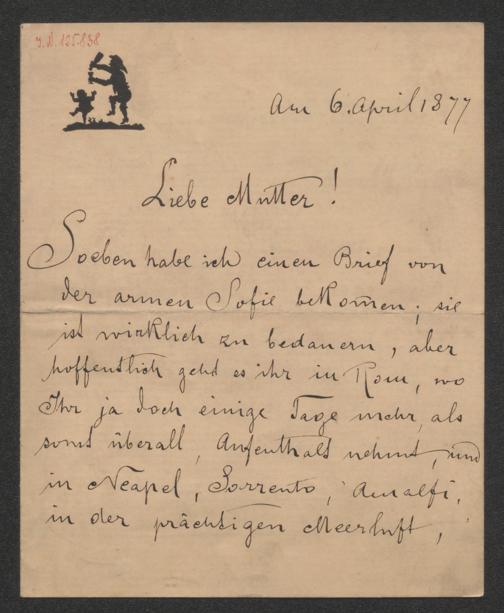 J.N. 125.838
Am 6. April 1877
Liebe Mutter!
Soeben habe ich einen Brief von
der armen Sofie bekom̅en; sie
ist wirklich zu bedauern, aber
hoffentlich geht es ihr in Rom, wo
Ihr ja doch einige Tage mehr, als
sonst überall, Aufenthalt nehmt, und
in Neapel, Sorrento, Amalfi,
in der prächtigen Meerluft,